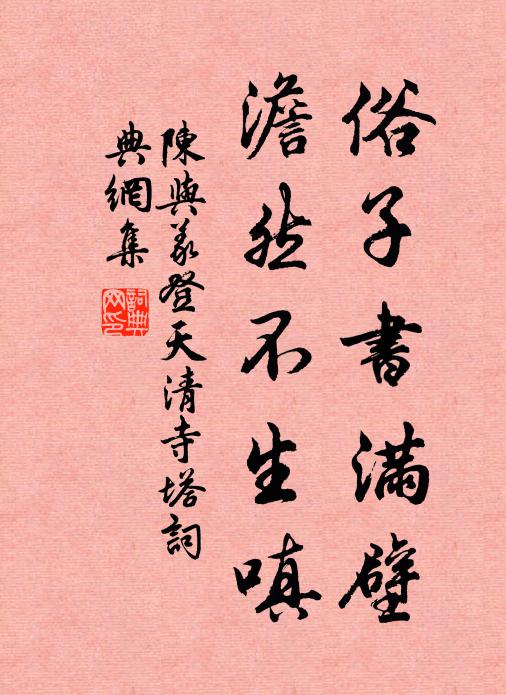 俗子書满壁
澹然不生嗔
陳與義登天清寺塔詞
典網集
詞典
网印